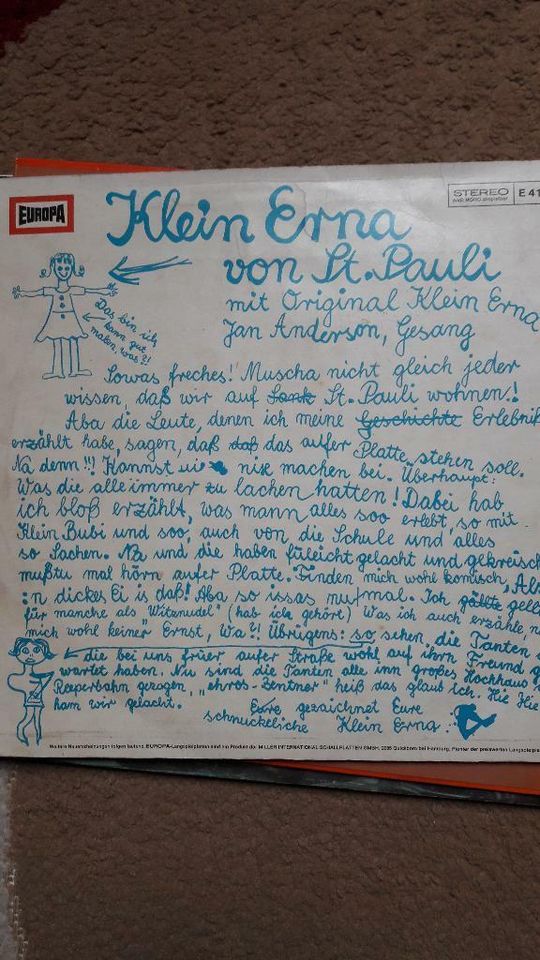 EUROPA
STEREO
E 41
Klein Erna
von St. Pauli
mit Original Klein Erna
Jan Anderson, Gesang
Das bin ich
kann gut
malen, was?!
Sowas freches! Muscha nicht gleich jeder
wissen, daß wir auf Sank St. Pauli wohnen!
Aba die Leute, denen ich meine Geschichte Erlebnis
erzählt habe, sagen, daß daß das aufer Platte stehen soll.
Na denn!!! Kannst nix machen bei. Überhaupt:
Was die alle immer zu lachen hatten! Dabei hab
ich bloß erzählt, was mann alles soo erlebt, so mit
Klein Bubi und soo, auch von die Schule und alles
so Sachen. Na und die haben füleicht gelacht und gekreisch
mußtu mal hörn aufer Platte. Finden mich wohl komisch, Als
:n dickes Ei is daß! Aba so issas nufmal. Ich gällte gelle
für manche als "Witznudel" (hab ich gehört) Was ich auch erzähle, n
mich wohl keiner Ernst, Wa?! Übrigens: so sehen, die Tanten
die bei uns früer aufer Straße wohl auf ihrn Freund g
wartet haben. Nu sind die Tanten alle inn großes Hochhaus
Reeperbahn gezogen, "ehros-Zentner" heiß das glaub ich. Hie Hie
ham wir gelacht.
Eure gezeichnet Eure
schnuckeliche Klein Erna:
Weitere Neuerscheinungen folgen laufend. EUROPA-Langspielplatten sind ein Produkt der MILLER INTERNATIONAL SCHALLPLATTEN GMBH, 2085 Quickborn bei Hamburg, Pionier der preiswerten Langspielpl